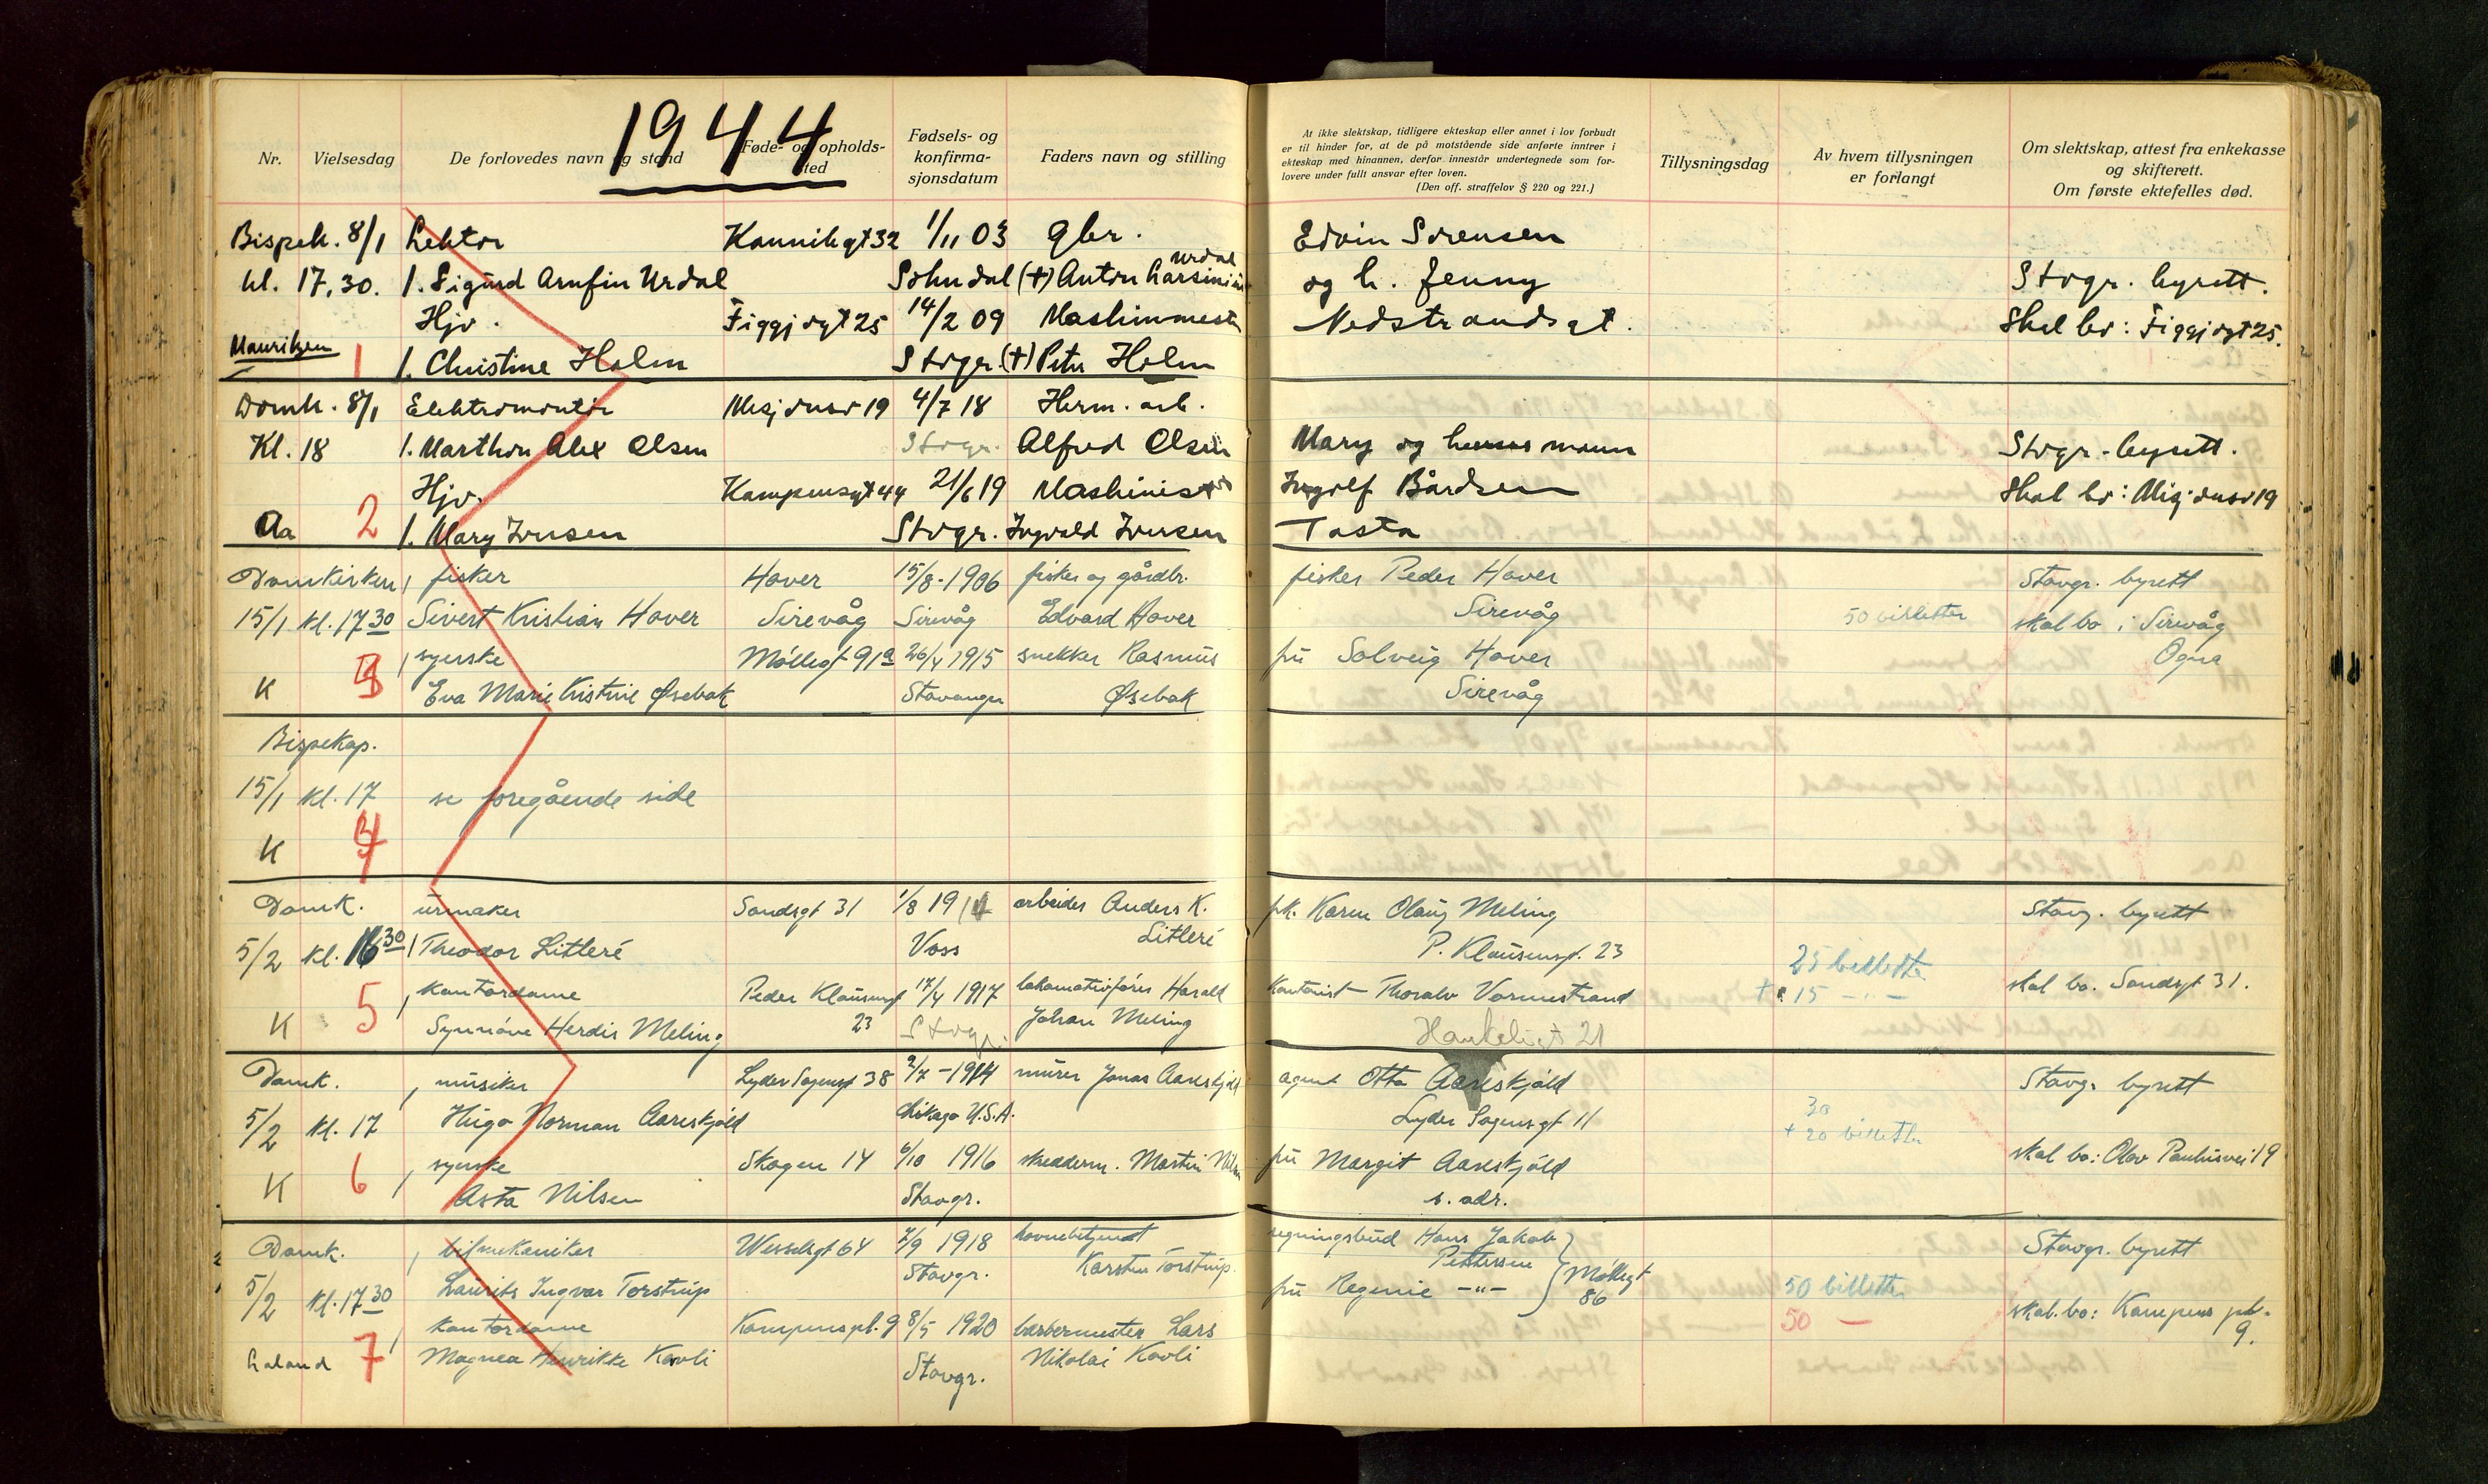 1944
Nr. Vielsesdag De forlovedes navn og stand Føde- og opholds-sted Fødsels- og konfirma-sjonsdatum Faders navn og stilling
At ikke slektskap, tidligere ekteskap eller annet i lov forbudt
er til hinder for, at de på motstående side anførte inntrer i
ekteskap med hinannen, derfor innestår undertegnede som for-
lovere under fullt ansvar efter loven.
[Den off. straffelov § 220 og 221.]
Tillysningsdag
Av hvem tillysningen
er forlangt
Om slektskap, attest fra enkekasse
og skifterett.
Om første ektefelles død.
Bispek. 8/1 Lektor Kannikgt 32 1/11 03 gbr. Edvin Sørensen
kl. 17,30. 1. Sigurd Arnfin Urdal Sokndal (+) Anton Urdal og h. Jenny Stvgr. byrett.
Hjv. Figgjogt 25 14/2 09 Maskinmester Nedstrandsgt. Skal bo: Figgjogt 25.
Mauritzen 1 1. Christine Holm Stvgr. (+) Peter Holm
Domk. 8/1 Elektromontör Misjonsv 19 4/7 18 Herm. arb.
Kl. 18 1. Marthon Alex Olsen Stvgr. Alfred Olsen Mary og hennes mann Stvgr. byrett.
Hjv. Kampensgt 44 21/6 19 Maskinist Ingolf Bårdsen Skal bo: Misjonsv 19
Aa 2 1. Mary Iversen Stvgr. Ingvald Iversen Tasta
Domkirken 1 fisker Hover 15/8-1906 fisker og gårdbr. fisker Peder Hover Stavgr. byrett
15/1 kl. 17 30 Sivert Kristian Hover Sirevåg Sirevåg Edvard Hover Sirevåg 50 billetter skal bo i Sirevåg
3 1 syerske Møllegt 91a 26/4 1915 snekker Rasmus frú Solveig Hover Ogna
K Eva Marie Kristine Øsebak Stavanger Øsebak Sirevåg
Bispekap.
15/1 kl. 17 se foregående side
K 4
Domk. urmaker Sandsgt 31 1/8 1914 arbeider Anders K. frk. Karen Olaug Meling Stavg. byrett
5/2 kl. 16 30 1 Theodor Litleré Voss Litleré P. Klausensgt. 23 25 billetter
5 1 kontordame Peder Klausensgt 17/4 1917 lokomotivfører Harald Kontorist Thoralv Vormestrand + 15 -"- skal bo. Sandsgt 31.
K Synnöve Herdis Meling 23 Stvgr. Johan Meling Haukeligt 21
Domk. 1 musiker Lyder Sagensgt 38 2/7-1914 murer Jonas Aareskjold agent Otto Aareskjold Stavgr. byrett
5/2 kl. 17 Hugo Norman Aareskjold Chikago U.S.A. Lyder Sagensgt 11 30
+ 20 billetter
6 1 syerske Skagen 14 6/10 1916 skredderm. Martin Nilsen frú Margit Aareskjold skal bo: Olav Paulusvei 19
K Asta Nilsen Stavgr. s. adr.
Domk. 1 bilmekaniker Wesselsgt 64 2/9 1918 havnebetjent regningsbud Hans Jakob Stavgr. byrett
5/2 kl. 17 30 Laurits Ingvar Torstrup Stavgr. Karsten Torstrup. Pettersen Møllegt 86
frú Regine -"- 50 billetter
7 1 kontordame Kampenspl. 9 8/5 1920 barbermester Lars 50 — skal. bo: Kampens pl. 9.
Laland Magnea Henrikke Kavli Stavgr. Nikolai Kavli